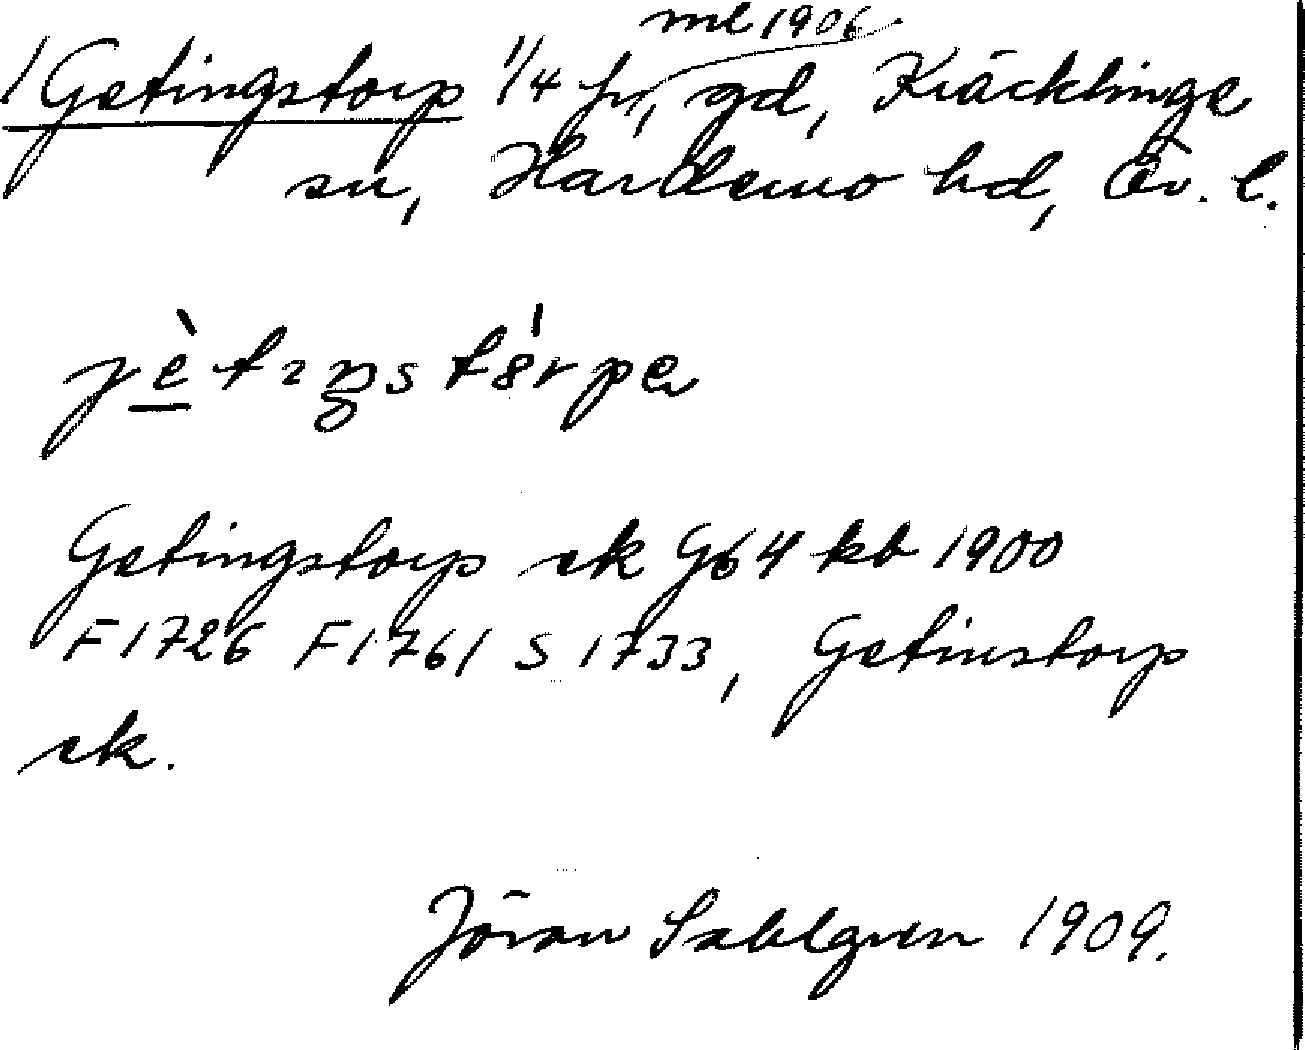 ml 1906
1 Getingstorp 1/4 fr, gd, Kräcklinge
sn, Hardemo hd, Ör. l.
Getingstorp ek G64 kb 1900
F 1726 F 1761 S 1733, Getinstorp
ek.
Jöran Sahlgren 1909.